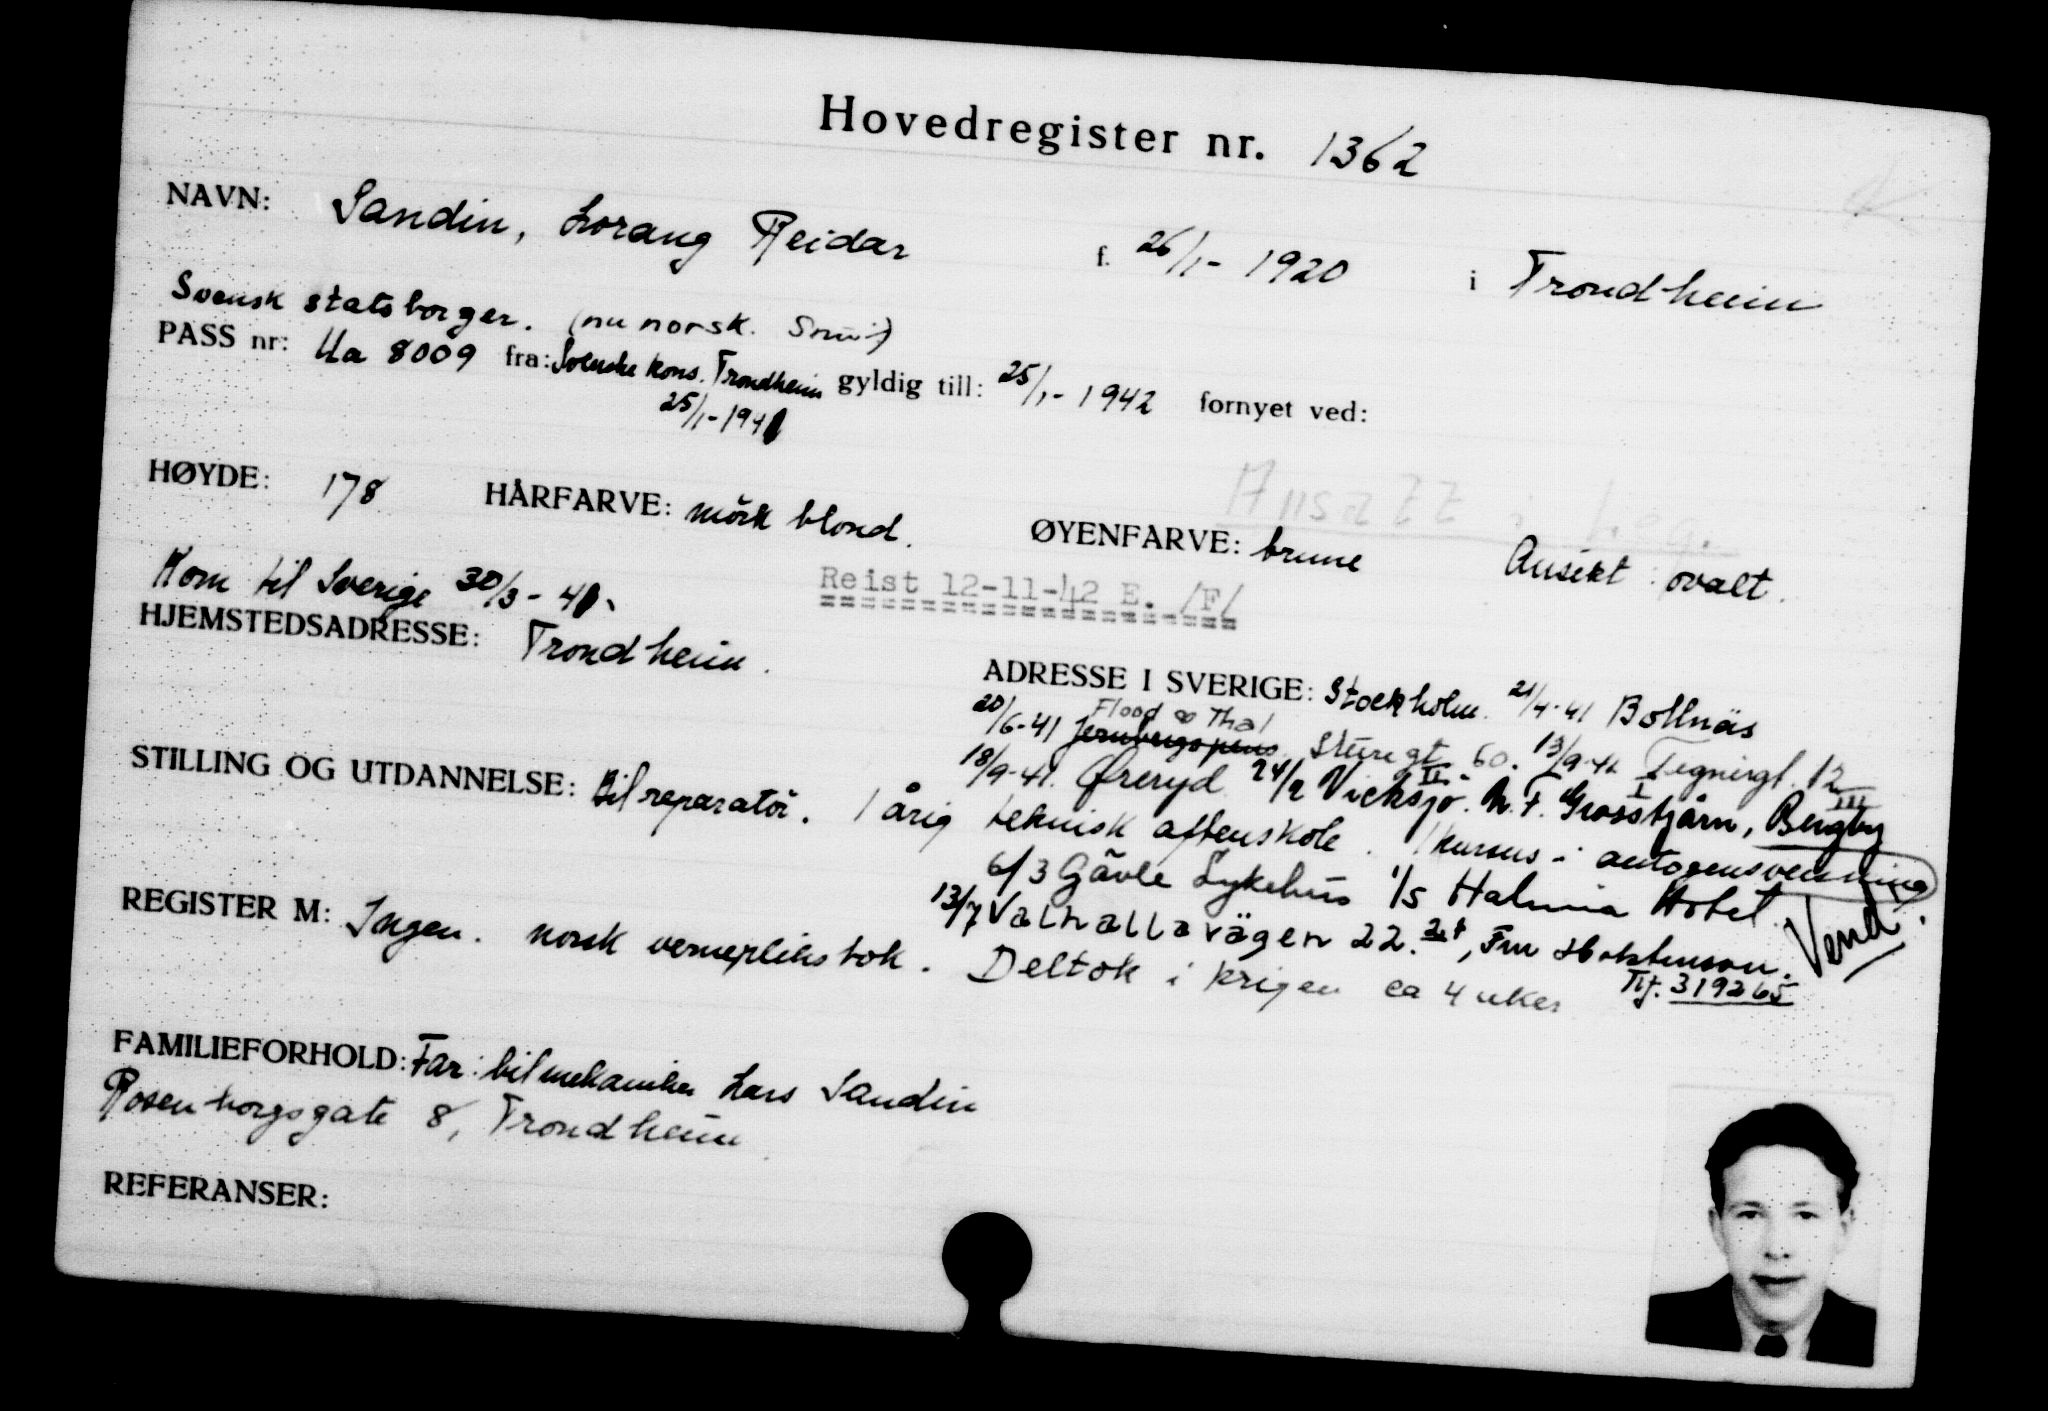 Hovedregister nr. 1362
NAVN: Sandin, Lorang Reidar f. 26/1- 1920 i Trondheim
Svensk statsborger. (nu norsk.
PASS nr: Ua 8009 fra: Svenske kons. Trondheim gyldig till: 25/1- 1942 fornyet ved:
25/1-1941
HØYDE: 178 HÅRFARVE: mörk blond. ØYENFARVE: brune Ansikt: ovalt.
Kom til Sverige 30/3-41.
Reist 12-11-42 E. /F/
HJEMSTEDSADRESSE: Trondheim.
ADRESSE I SVERIGE: Stockholm. 21/4-41 Bollnäs
Flood & Thal
20/6-41 Jernbergspens. Sturegt 60. 13/9-41 Tegnérgt. 12
18/9-41. Øreryd 24/2 Vieksjö. II. N.F. Grosstjårn, I Bergby III
STILLING OG UTDANNELSE: Bilreparatör. 1 årig teknisk aftenskole. 1 kursus i autogensveisning
6/3 Gävle Sykehus 1/5 Halmia Hotel.
Vend.
13/7 Valhallavägen 22. 2t, Fru
REGISTER M: Ingen norsk vernepliksbok. Deltok i krigen ca 4 uker
Tlf. 319265
FAMILIEFORHOLD: Far: bilmekaniker Lars Sandin
Rosenborgsgate 8, Trondheim
REFERANSER: